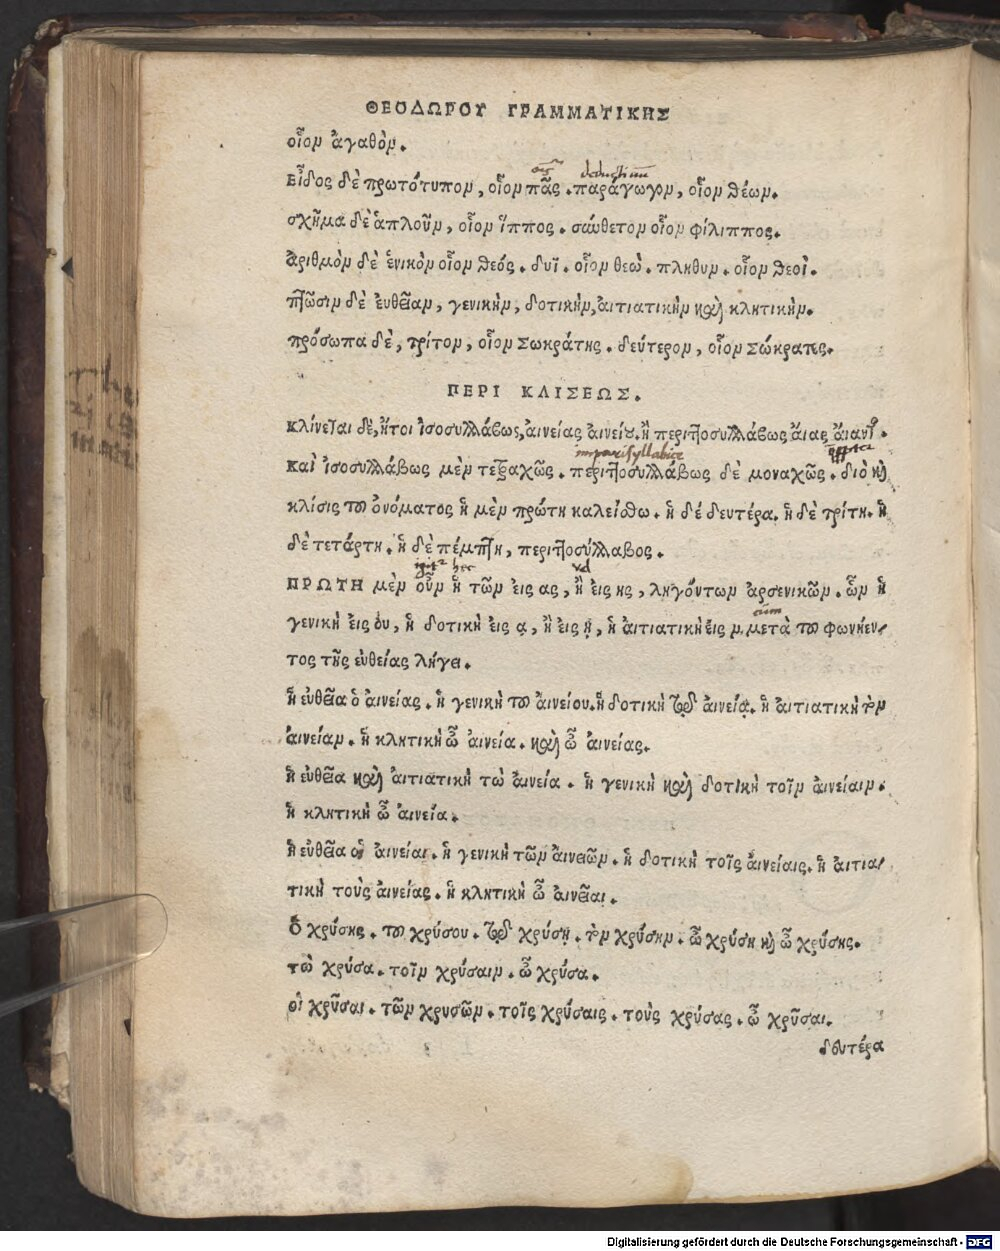 ΘΕΟΔΩΡΟΥ ΓΡΑΜΜΑΤΙΚΗΣ
οἷον ἀγαθὸν.
deductiuum
Εἶδος δὲ πρωτότυπον, οἷον πᾶς. παράγωγον, οἷον θέων.
σχῆμα δὲ ἁπλοῦν, οἷον ἵππος. σύνθετον οἷον φίλιππος.
ἀριθμὸν δὲ ἑνικὸν οἷον θεός. δυϊ. οἷον θεώ. πληθυν. οἷον θεοί.
πτῶσιν δὲ εὐθεῖαν, γενικὴν, δοτικὴν, αἰτιατικὴν καὶ κλητικήν.
πρόσωπα δὲ, τρίτον, οἷον Σωκράτης. δεύτερον, οἷον Σώκρατες.
ΠΕΡΙ ΚΛΙΣΕΩΣ.
Κλίνεται δὲ, ἤτοι ἰσοσυλλάβως, αἰνείας αἰνείου. ἢ περιττοσυλλάβως αἴας αἴαντος.
imparisyllabice
Καὶ ἰσοσυλλάβως μὲν τετραχῶς. περιττοσυλλάβως δὲ μοναχῶς. διὸ καὶ
κλίσις τοῦ ὀνόματος ἡ μὲν πρώτη καλείσθω. ἡ δὲ δευτέρα. ἡ δὲ τρίτη. ἡ
δὲ τετάρτη. ἡ δὲ πέμπτη, περιττοσύλλαβος.
vel
ΠΡΩΤΗ μὲν οὖν ἡ τῶν εἰς ας, ἢ εἰς ης, ληγόντων ἀρσενικῶν. ὧν ἡ
cum
γενικὴ εἰς ου, ἡ δοτικὴ εἰς ᾳ, ἢ εἰς ῃ, ἡ αἰτιατικὴ εἰς ν. μετὰ τοῦ φωνήεν/
τος τῆς εὐθείας λήγει.
ἡ εὐθεῖα ὁ αἰνείας. ἡ γενικὴ τοῦ αἰνείου. ἡ δοτικὴ τῷ αἰνείᾳ. ἡ αἰτιατικὴ τὸν
αἰνείαν. ἡ κλητικὴ ὦ αἰνεία. καὶ ὦ αἰνείας.
ἡ εὐθεῖα καὶ αἰτιατικὴ τὼ αἰνεία. ἡ γενικὴ καὶ δοτικὴ τοῖν αἰνείαιν.
ἡ κλητικὴ ὦ αἰνεία.
ἡ εὐθεῖα οἱ αἰνείαι. ἡ γενικὴ τῶν αἰνειῶν. ἡ δοτικὴ τοῖς αἰνείαις. ἡ αἰτια/
τικὴ τοὺς αἰνείας. ἡ κλητικὴ ὦ αἰνεῖαι.
ὁ χρύσης. τοῦ χρύσου. τῷ χρύσῃ. τὸν χρύσην. ὦ χρύση καὶ ὦ χρύσης.
τὼ χρύσα. τοῖν χρύσαιν. ὦ χρύσα.
οἱ χρῦσαι. τῶν χρυσῶν. τοῖς χρύσαις. τοὺς χρύσας. ὦ χρῦσαι.
δευτέρα
Digitalisierung gefördert durch die Deutsche Forschungsgemeinschaft - DFG